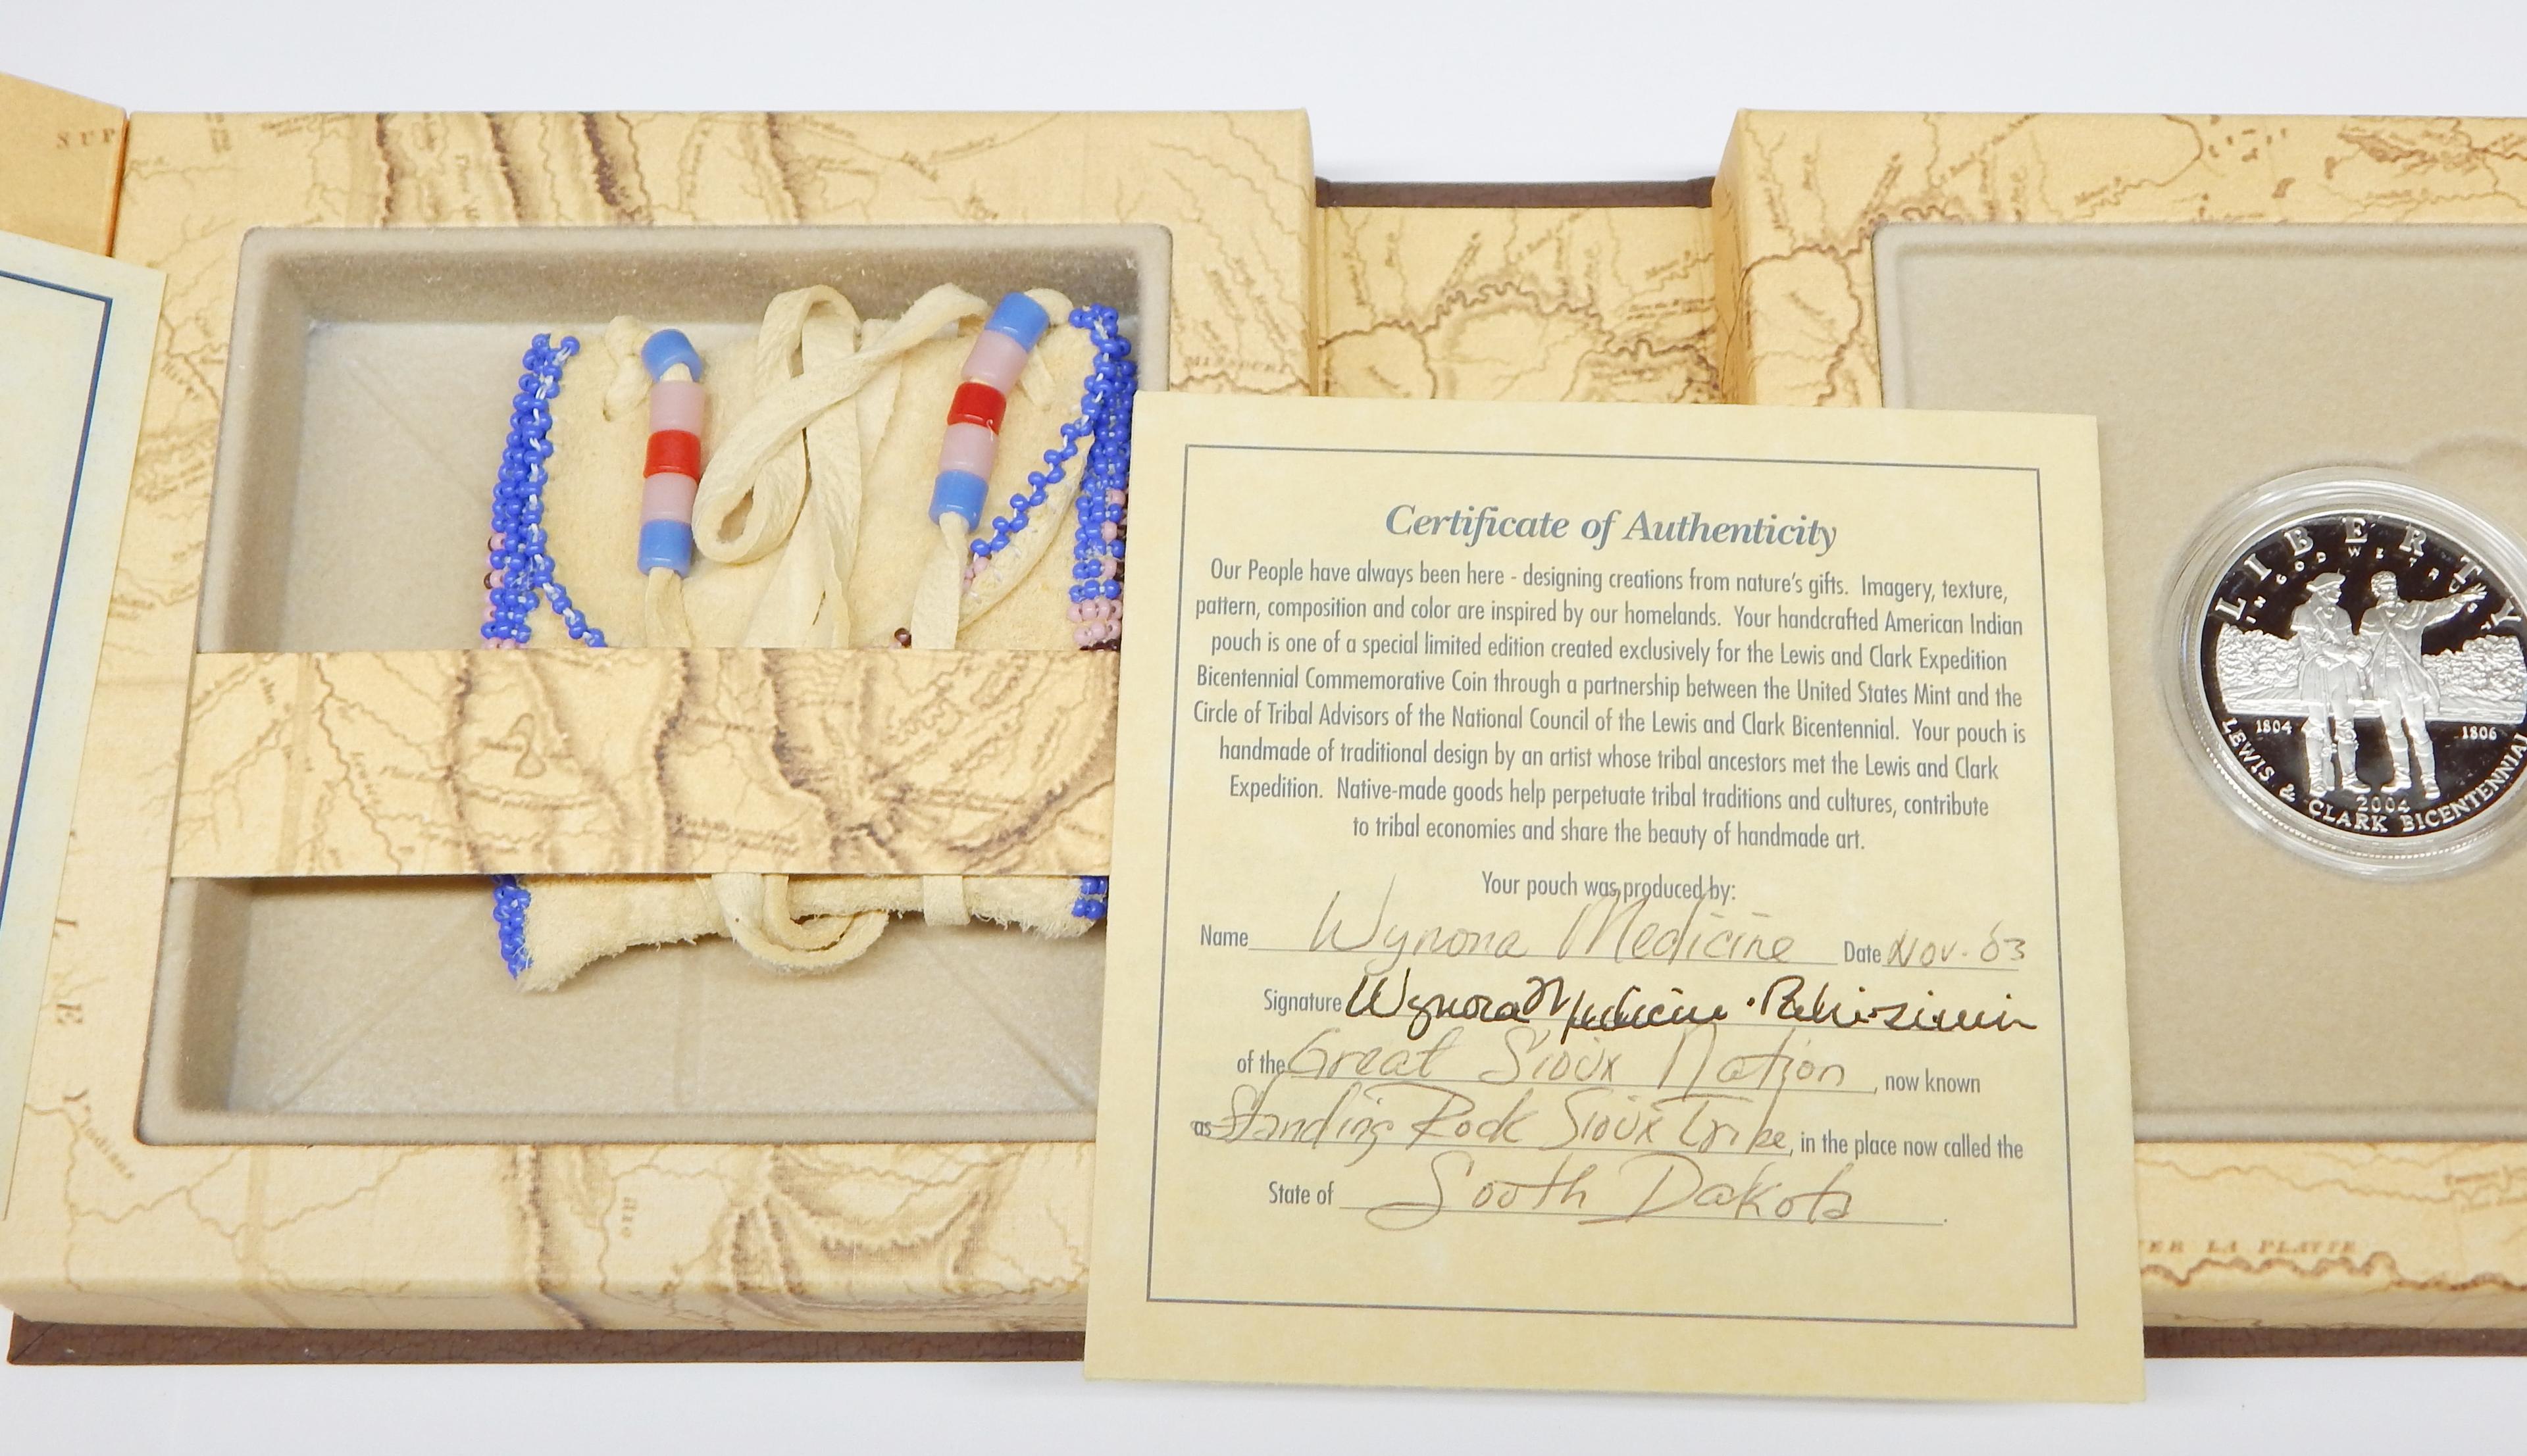 SUP
MISSOURI
Certificate of Authenticity
Our People have always been here - designing creations from nature's gifts. Imagery, texture,
pattern, composition and color are inspired by our homelands. Your handcrafted American Indian
pouch is one of a special limited edition created exclusively for the Lewis and Clark Expedition
Bicentennial Commemorative Coin through a partnership between the United States Mint and the
Circle of Tribal Advisors of the National Council of the Lewis and Clark Bicentennial. Your pouch is
handmade of traditional design by an artist whose tribal ancestors met the Lewis and Clark
Expedition. Native-made goods help perpetuate tribal traditions and cultures, contribute
to tribal economies and share the beauty of handmade art.
Your pouch was produced by:
Name Wynona Medicine Date Nov. 03
Signature Wynona Medicine
of the Great Sioux Nation, now known
as Standing Rock Sioux Tribe, in the place now called the
State of South Dakota.
LIBERTY
IN GOD WE TRUST
1804 1806
2004
LEWIS & CLARK BICENTENNIAL
L E Y
LA PLATTE